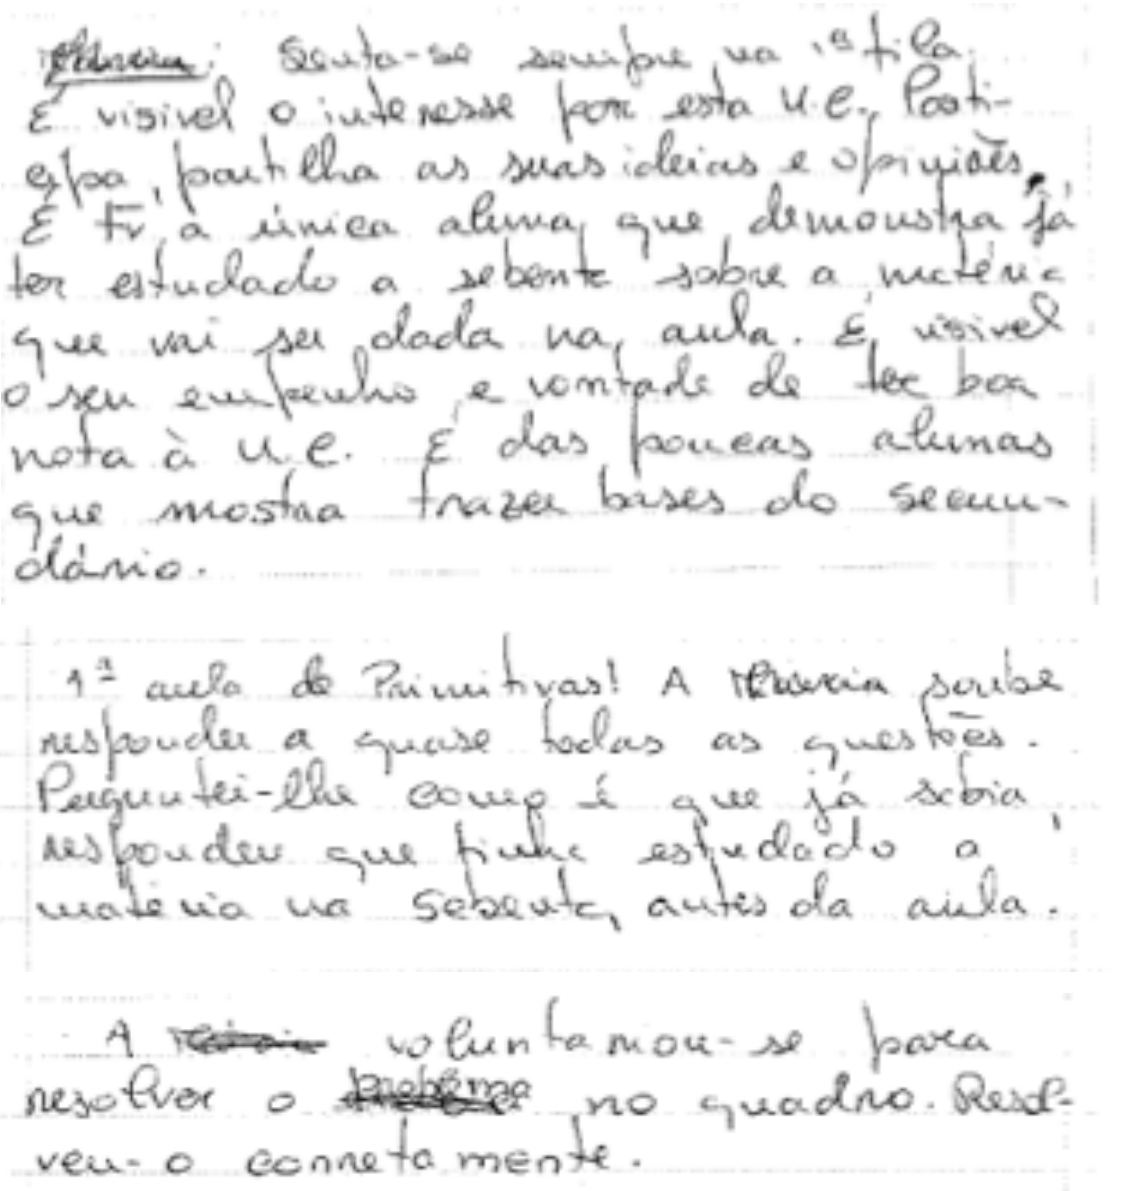 : Senta-se sempre na 1ª fila.
É visivel o interesse por esta U.C., Parti-
cipa, partilha as suas ideias e opiniões.
É a única aluna, que demonstra já
ter estudado a sebenta sobre a matéria
que vai ser dada na, aula. É visivel
o seu empenho e vontade de ter boa
nota à U.C. É das poucas alunas
que mostra trazer bases do secun-
dário.
1ª aula de Primitivas! A soube
responder a quase todas as questões.
Perguntei-lhe como é que já sabia,
responder que tinha estudado a
matéria na Sebenta, antes da aula.
A voluntariou-se para
resolver o no quadro. Resol-
veu-o corretamente.